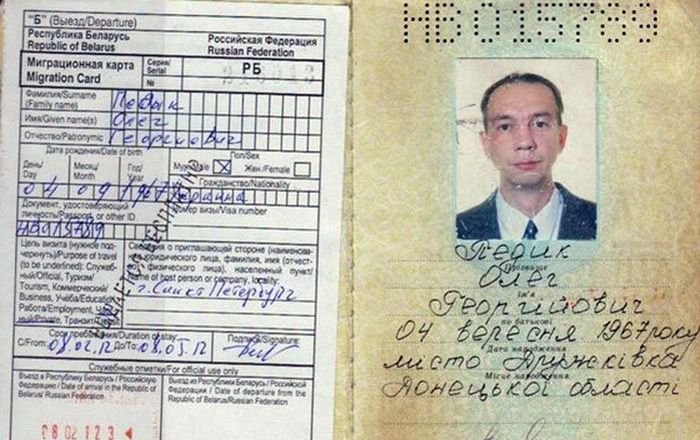 "Б" (Выезд/Departure)
Республика Беларусь
Republic of Belarus
Российская Федерация
Russian Federation
Миграционная карта
Migration Card
Серия/
Serial
РБ
№
Фамилия/Surname
(Family name)
Педык
Имя/Given name(s)
Олег
Отчество/Patronymic
Георгиевич
Дата рождения/Date of birth
Пол/Sex
День/
Day
Месяц/
Month
Год/
Year
Муж./Male
Жен./Female
04 09 1967
Гражданство/Nationality
Украина
Документ, удостоверяющий
личность/Passport or other ID
Номер визы/Visa number
Цель визита (нужное под-
черкнуть)/Purpose of travel
(to be underlined): Служеб-
ный/Official, Туризм/
Tourism, Коммерческий/
Business, Учеба/Education,
Работа/Employment,
Транзит
Сведения о приглашающей стороне (наименова-
ние юридического лица, фамилия, имя (отчест-
во) физического лица), населенный пункт/
Name of host person or company, locality:
г. Санкт Петербург
Срок пребывания/Duration of stay:
С/From: 08.02.12 До/To: 08.05.12
Подпись/Signature:
Служебные отметки/For official use only
Въезд в Республику Беларусь/Российскую
Федерацию / Date of arrival in the Republic of
Belarus/Russian Federation
Выезд из Республики Беларусь/Российской
Федерации / Date of departure from the Republic of
Belarus/Russian Federation
НВ015789
Педик
Прізвище
Олег
ім'я
Георгійович
по батькові
04 вересня 1967 року
Дата народження
місто Дружківка
Місце народження
Донецької області